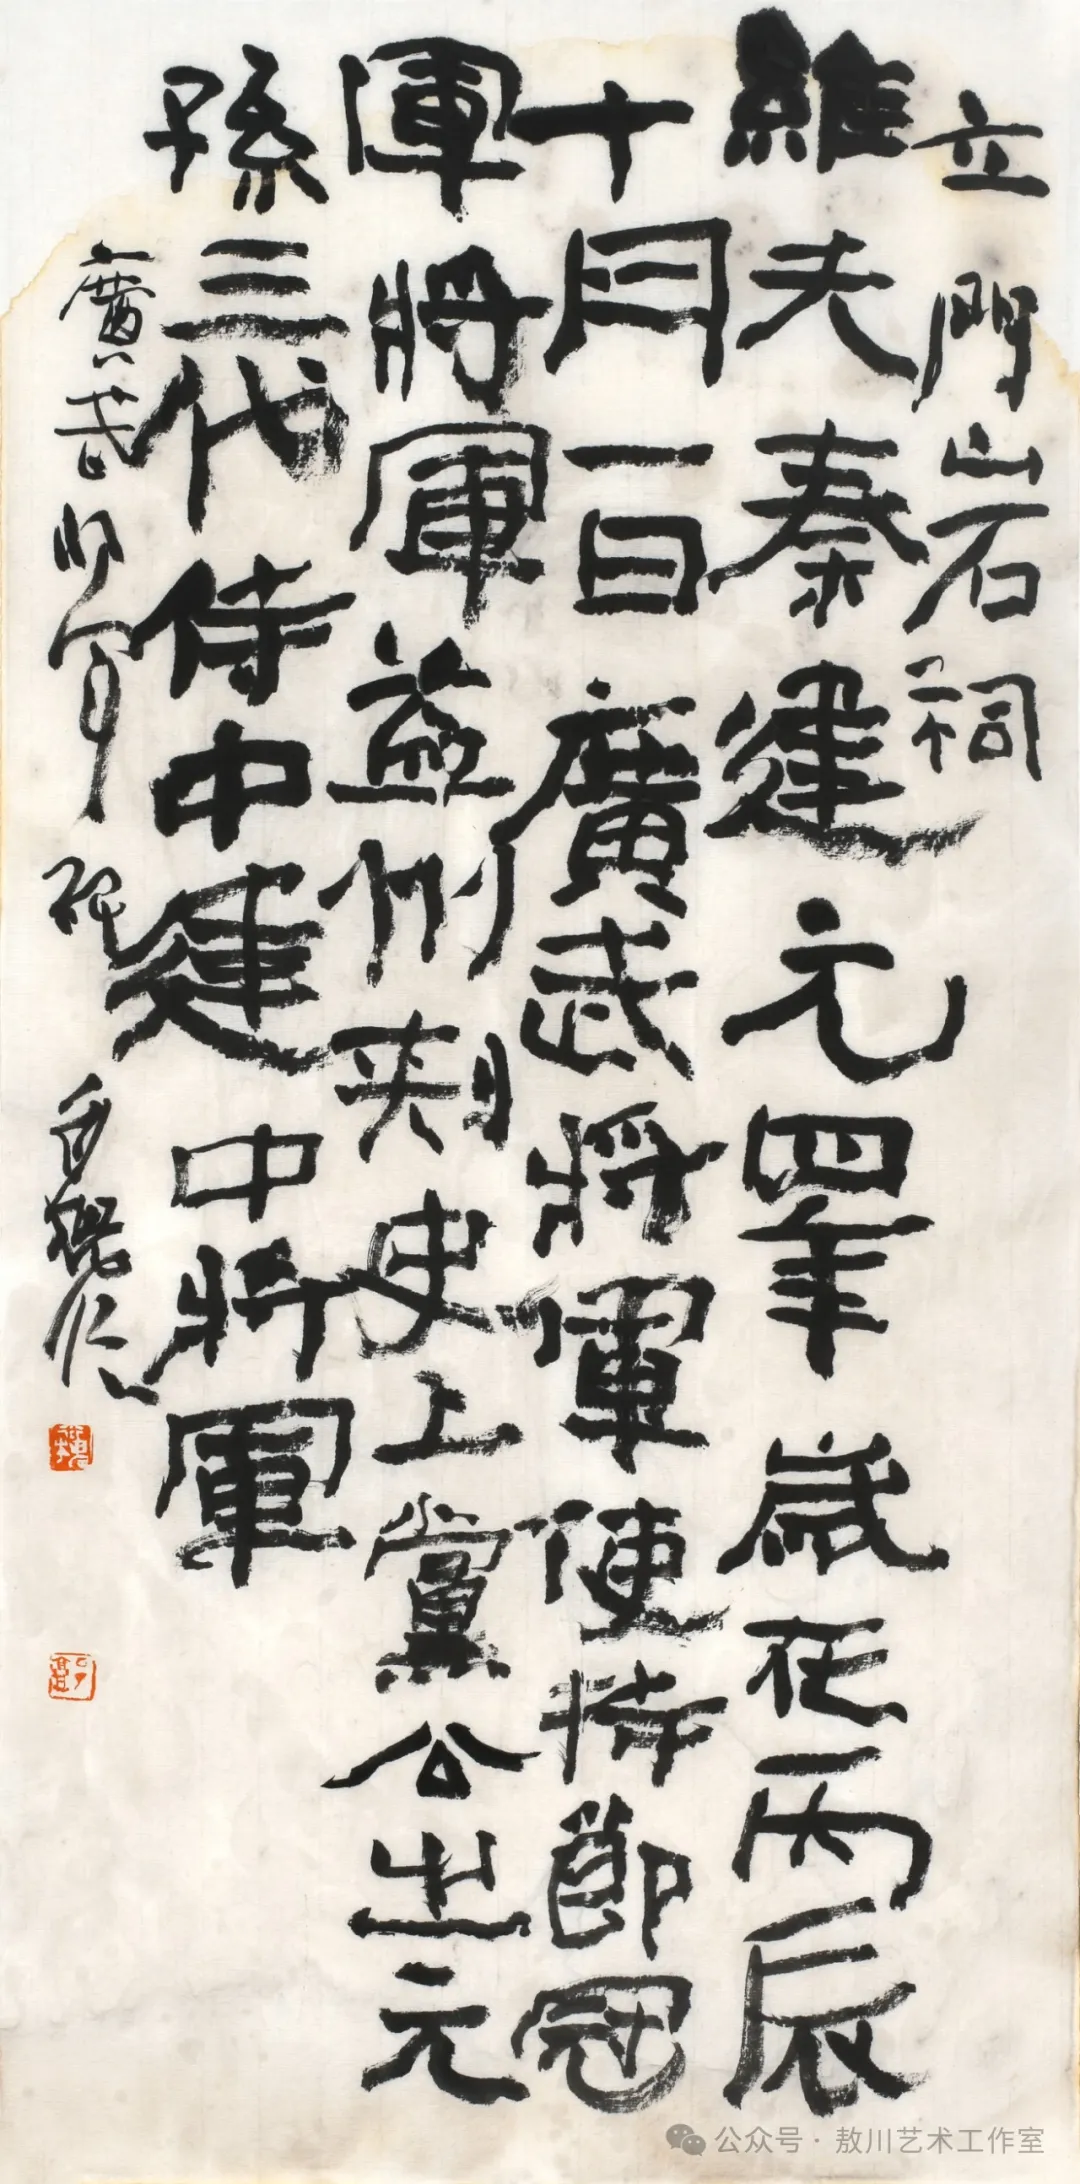 立門山石祠
維大秦建元四年歲在丙辰
十月一日廣武將軍使持節冠
軍將軍益州刺史上黨公之元
孫三代侍中建中將軍
廣武將軍碑
公众号·敖川艺术工作室